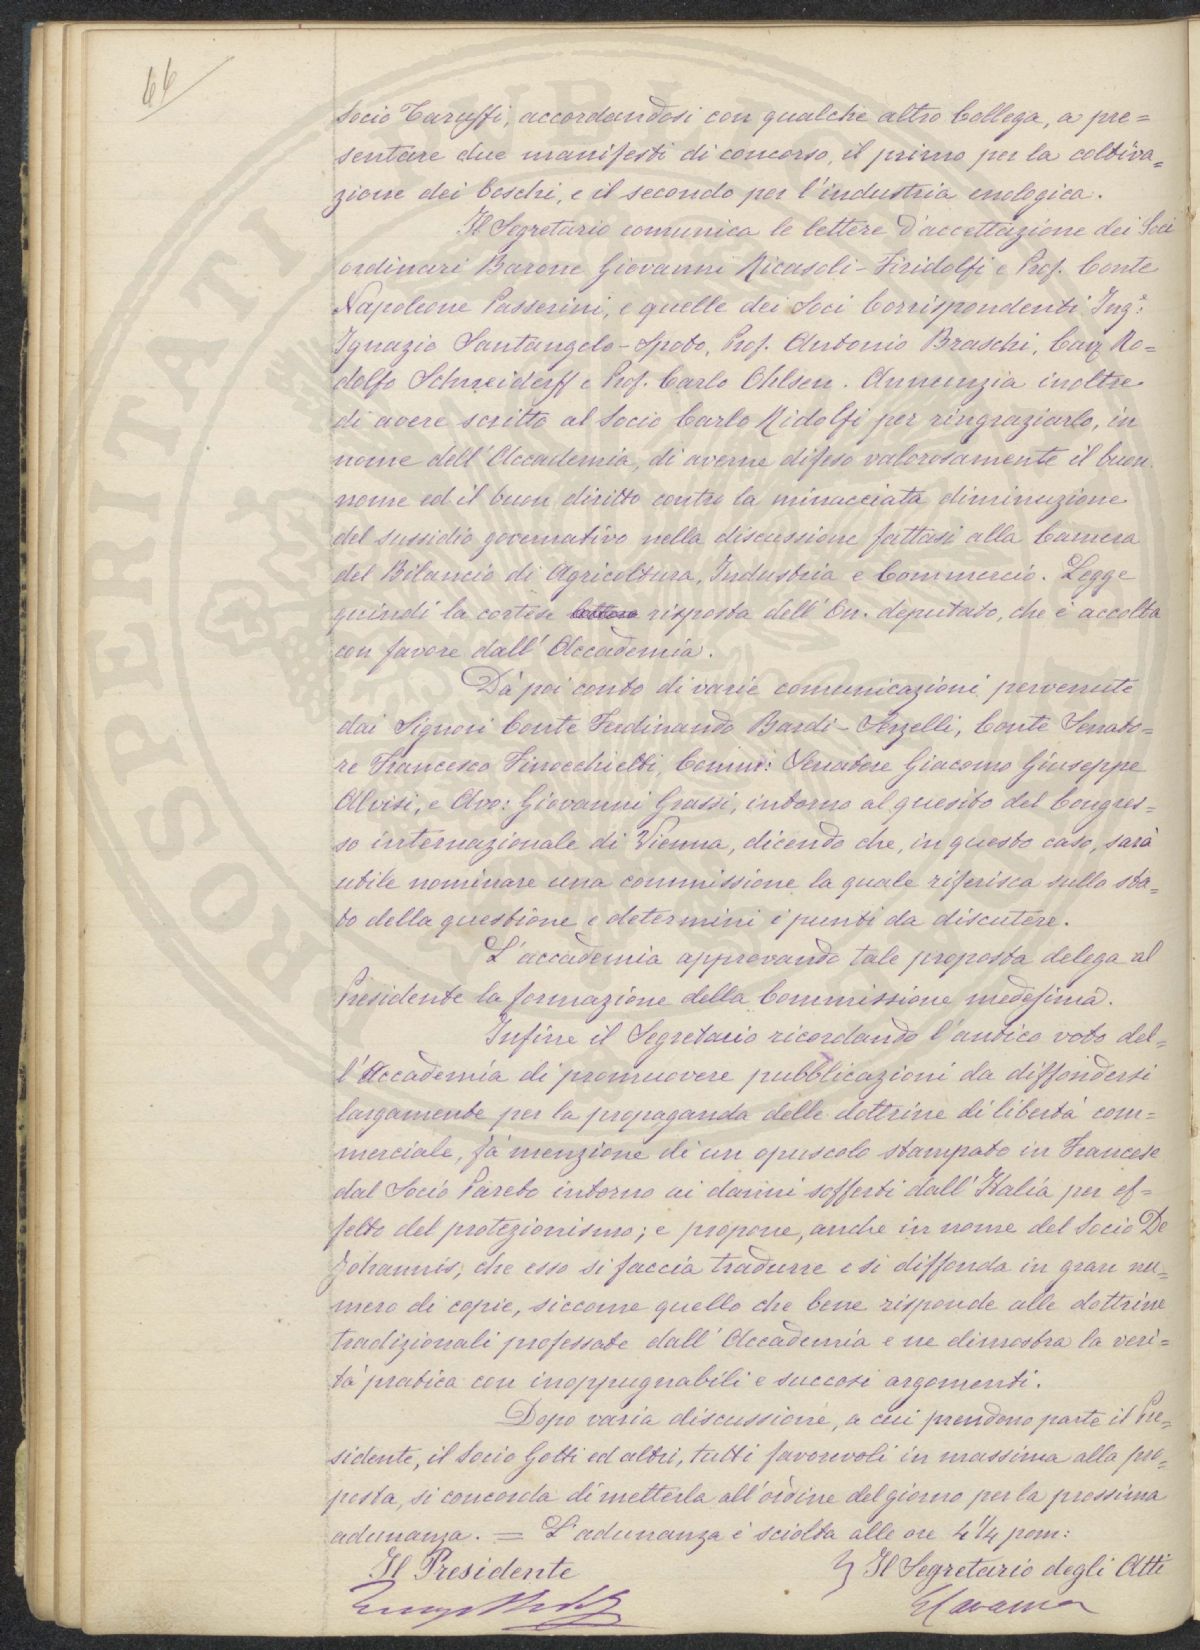 66
Socio Taruffi, accordandosi con qualche altro Collega, a pre=
sentare due manifesti di concorso, il primo per la coltiva=
zione dei boschi, e il secondo per l'industria enologica.
Il Segretario comunica le lettere d'accettazione dei Soci
ordinari Barone Giovanni Ricasoli-Firidolfi e Prof. Conte
Napoleone Passerini, e quelle dei Soci Corrispondenti Ing.e
Ignazio Santangelo-Spoto, Prof. Antonio Braschi, Cav. Ro=
dolfo Schneiderff e Prof. Carlo Ohlsen. Annunzia inoltre
di avere scritto al Socio Carlo Ridolfi per ringraziarlo, in
nome dell'Accademia, di averne difeso valorosamente il buon
nome ed il buon diritto contro la minacciata diminuzione
del sussidio governativo nella discussione fattasi alla Camera
del Bilancio di Agricoltura, Industria e Commercio. Legge
quindi la cortese lettera risposta dell'On. deputato, che è accolta
con favore dall'Accademia.
Dà poi conto di varie comunicazioni pervenute
dai Signori Conte Ferdinando Bardi-Serzelli, Conte Senato=
re Francesco Finocchietti, Comm: Senatore Giacomo Giuseppe
Alvisi, e Avv: Giovanni Grassi, intorno al quesito del Congres=
so internazionale di Vienna, dicendo che, in questo caso, sarà
utile nominare una commissione la quale riferisca sullo sta=
to della questione e determini i punti da discutere.
L'accademia approvando tale proposta delega al
Presidente la formazione della Commissione medesima.
Infine il Segretario ricordando l'antico voto del=
l'Accademia di promuovere pubblicazioni da diffondersi
largamente per la propaganda delle dottrine di libertà com=
merciale, fà menzione di un opuscolo stampato in Francese
dal Socio Pareto intorno ai danni sofferti dall'Italia per ef=
fetto del protezionismo; e propone, anche in nome del Socio De
Johannis, che esso si faccia tradurre e si diffonda in gran nu=
mero di copie, siccome quello che bene risponde alle dottrine
tradizionali professate dall'Accademia e ne dimostra la veri=
tà pratica con inoppugnabili e succosi argomenti.
Dopo varia discussione, a cui prendono parte il Pre=
sidente, il Socio Gotti ed altri, tutti favorevoli in massima alla pro=
posta, si concorda di metterla all'ordine del giorno per la prossima
adunanza. = L'adunanza è sciolta alle ore 4 1/4 pom:
Il Presidente
Il Segretario degli Atti
PROSPERITATI